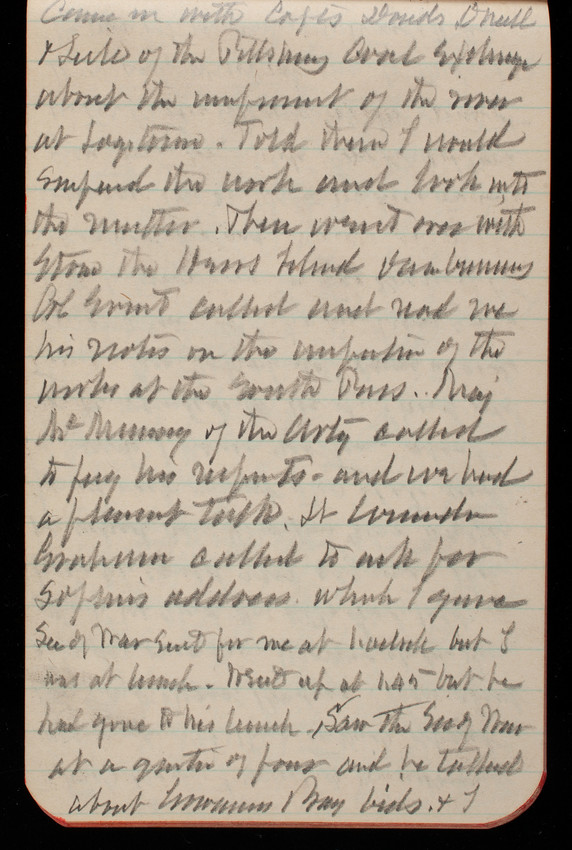 Came in with Capts Dravo O'Neill
& of the Pittsburg Coal Exchange
about the of the river
at Logstown. Told them I would
suspend the work and look into
the matter. Then went over with
Stone the
Col called and read me
his notes on the inspection of the
works at the South Pass. Maj
of the Arty called
to pay his respects - and we had
a pleasant talk. Lt Commdr
Graham called to ask for
Sophie's address. which I gave
Sec of War sent for me at 1 oclock but I
was at lunch. Went up at 1.45 but he
had gone to his lunch. Saw the Sec of War
at a quarter of four and he talked
about Gowanus Bay bids. & I